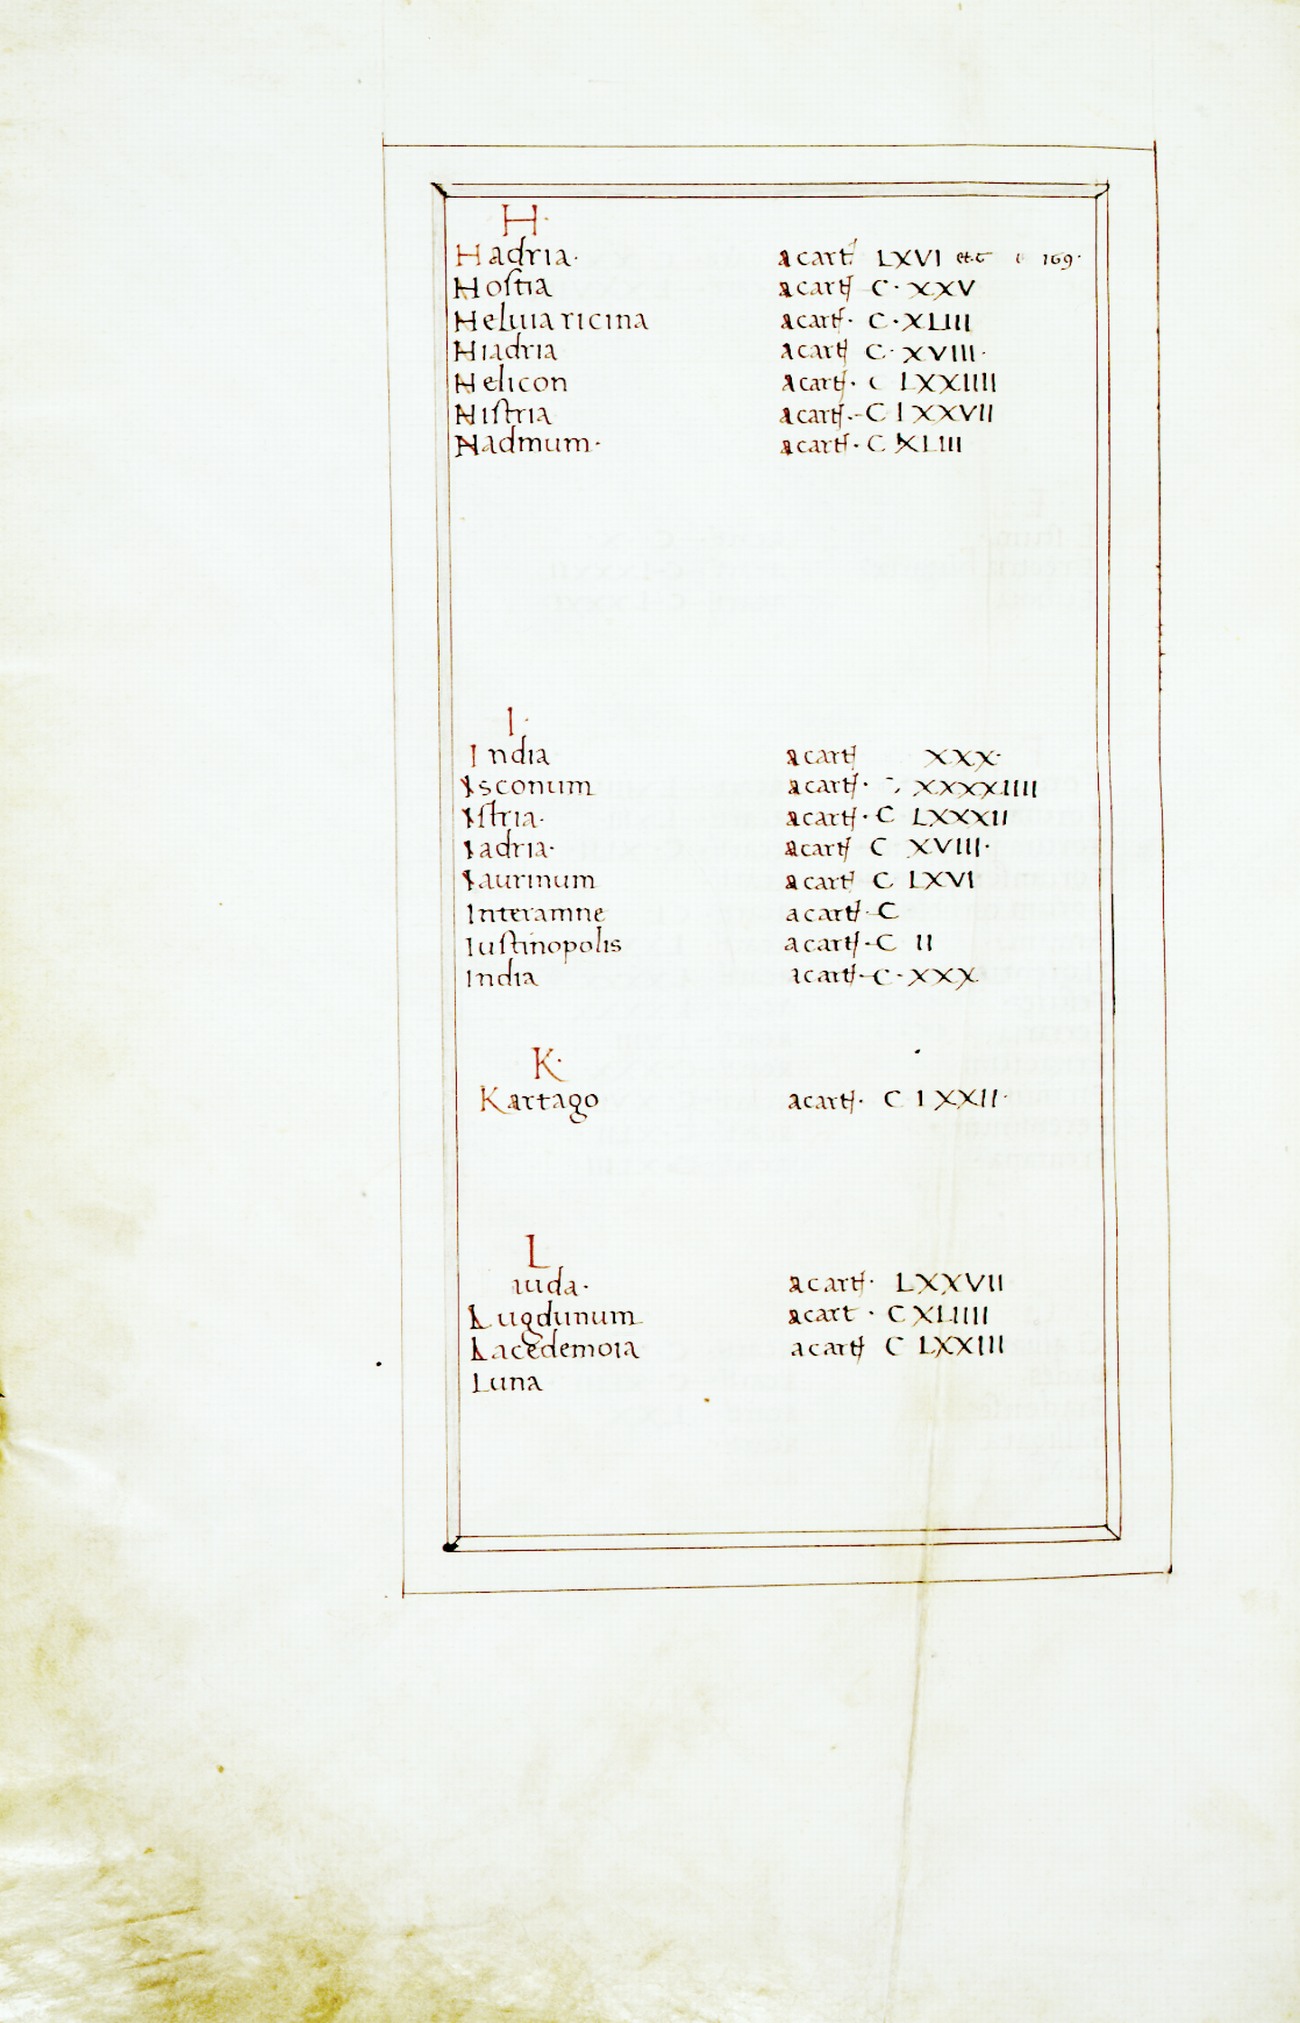 H·
Hadria· acart LXVI etc 169·
Hostia acart C·XXV
Heluia ricina acart· C·XLIII
Hiadria acart C·XVIII·
Helicon acart· C LXXIIII
Histria acart·-C LXXVII
Hadmum· acart·C XLIII
I·
India acart XXX·
Isconum acart· C XXXXIIII
Istria· acart·C LXXXII
Iadria· acart C XVIII·
Iaurinum acart C LXVI
Interamne acart-C
Iustinopolis acart-C II
India acart-C-XXX
K·
Kartago acart· C LXXII·
L
auda· acart· LXXVII
Lugdunum acart· CXLIIII
Lacedemoia acart C LXXIII
Luna